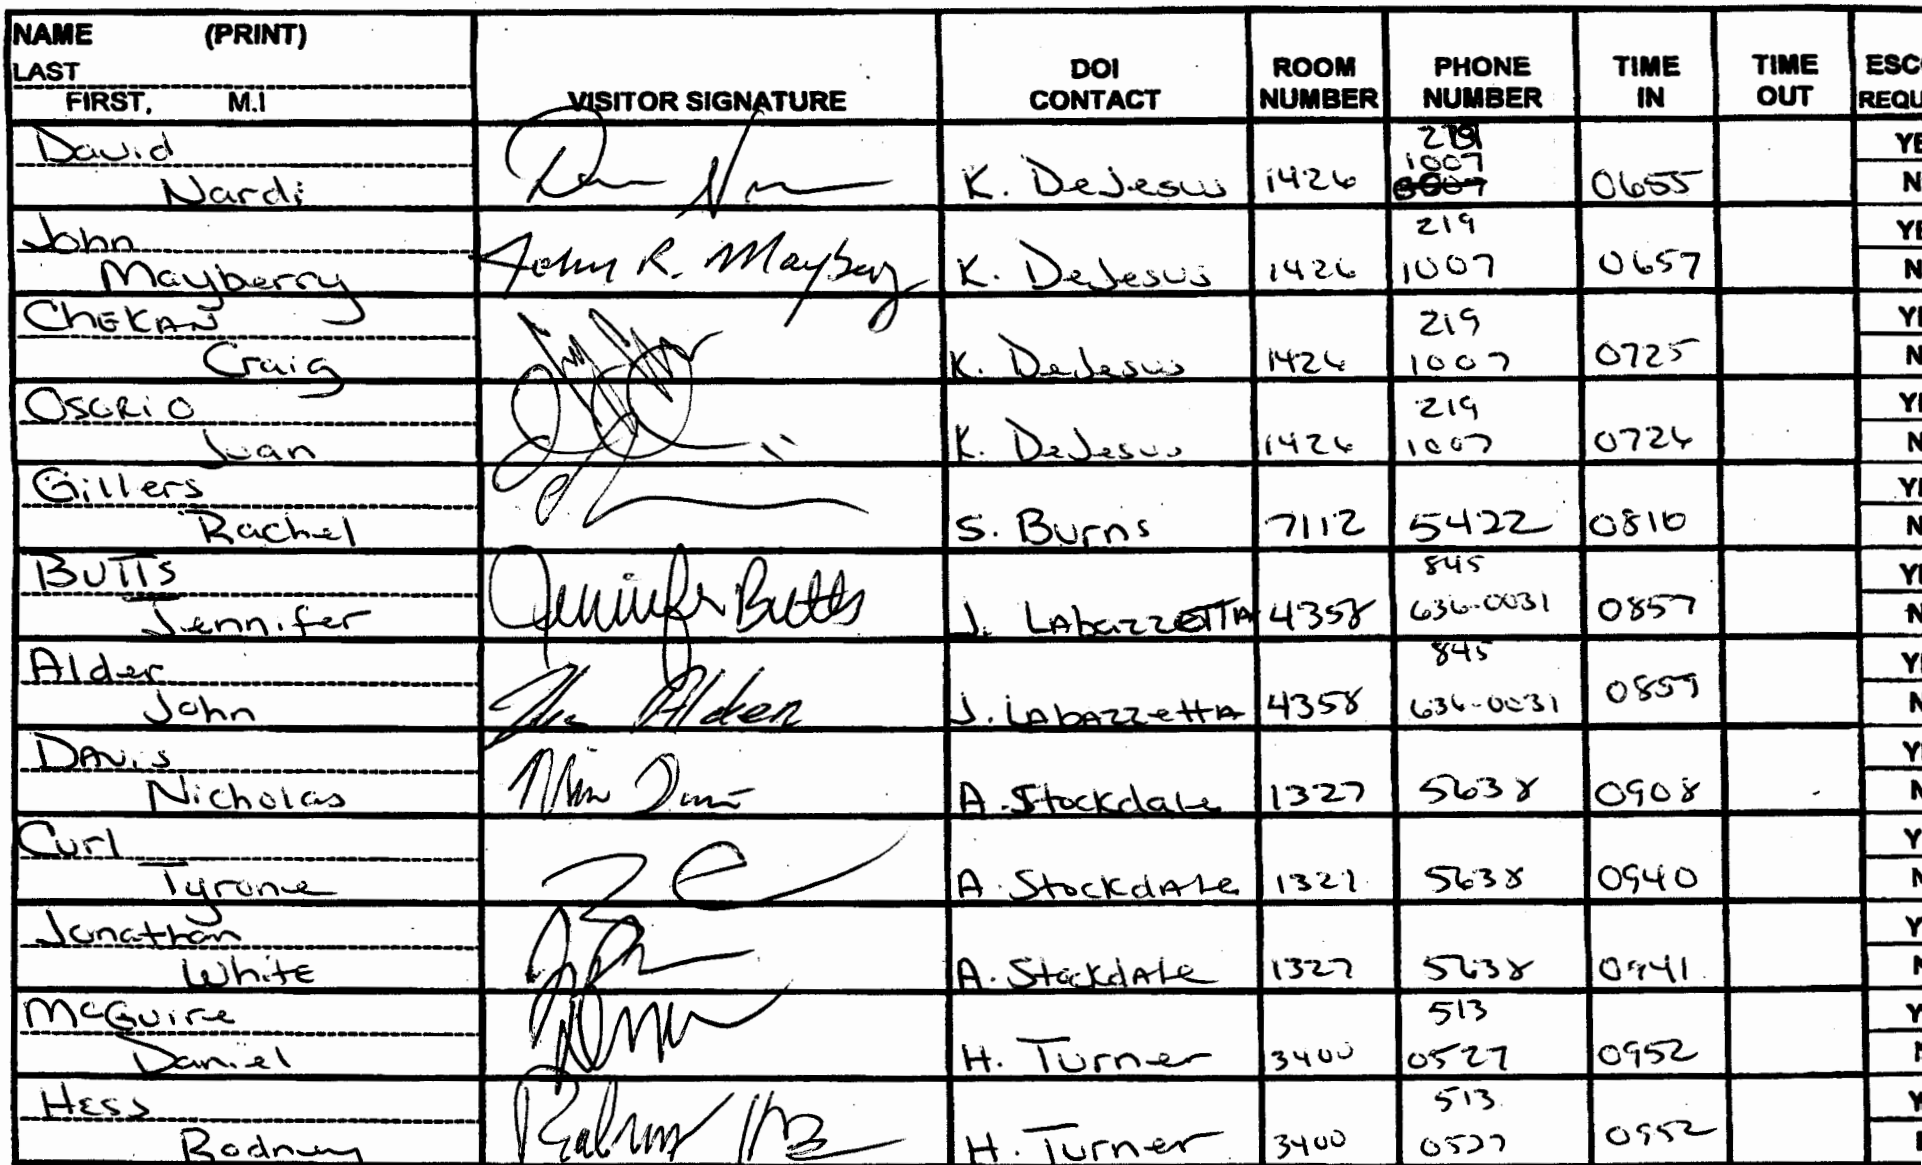 NAME (PRINT)
LAST
FIRST, M.I
VISITOR SIGNATURE
DOI CONTACT
ROOM NUMBER
PHONE NUMBER
TIME IN
TIME OUT
David
Nardi K. DeJesus 1426 1007 0655
John 219
Mayberry John R. Mayberry K. DeJesus 1426 1007 0657
CHEKAN 219
Craig K. DeJesus 1426 1007 0725
OSORIO 219
Juan K. DeJesus 1426 1007 0726
Gillers
Rachel S. Burns 7112 5422 0810
BUTTS 845
Jennifer Jennifer Butts J. LAbazzETTA 4358 636-0031 0857
Alder 845
John Alder J. LAbAzzettA 4358 636-0031 0859
DAVIS
Nicholas A. Stockdale 1327 5638 0908
Curl
Tyrone A. StockdAle 1327 5638 0940
Jonathan
White A. StockdAle 1327 5638 0941
McGuire 513
Daniel H. Turner 3400 0527 0952
HESS 513
Rodney H. Turner 3400 0527 0952